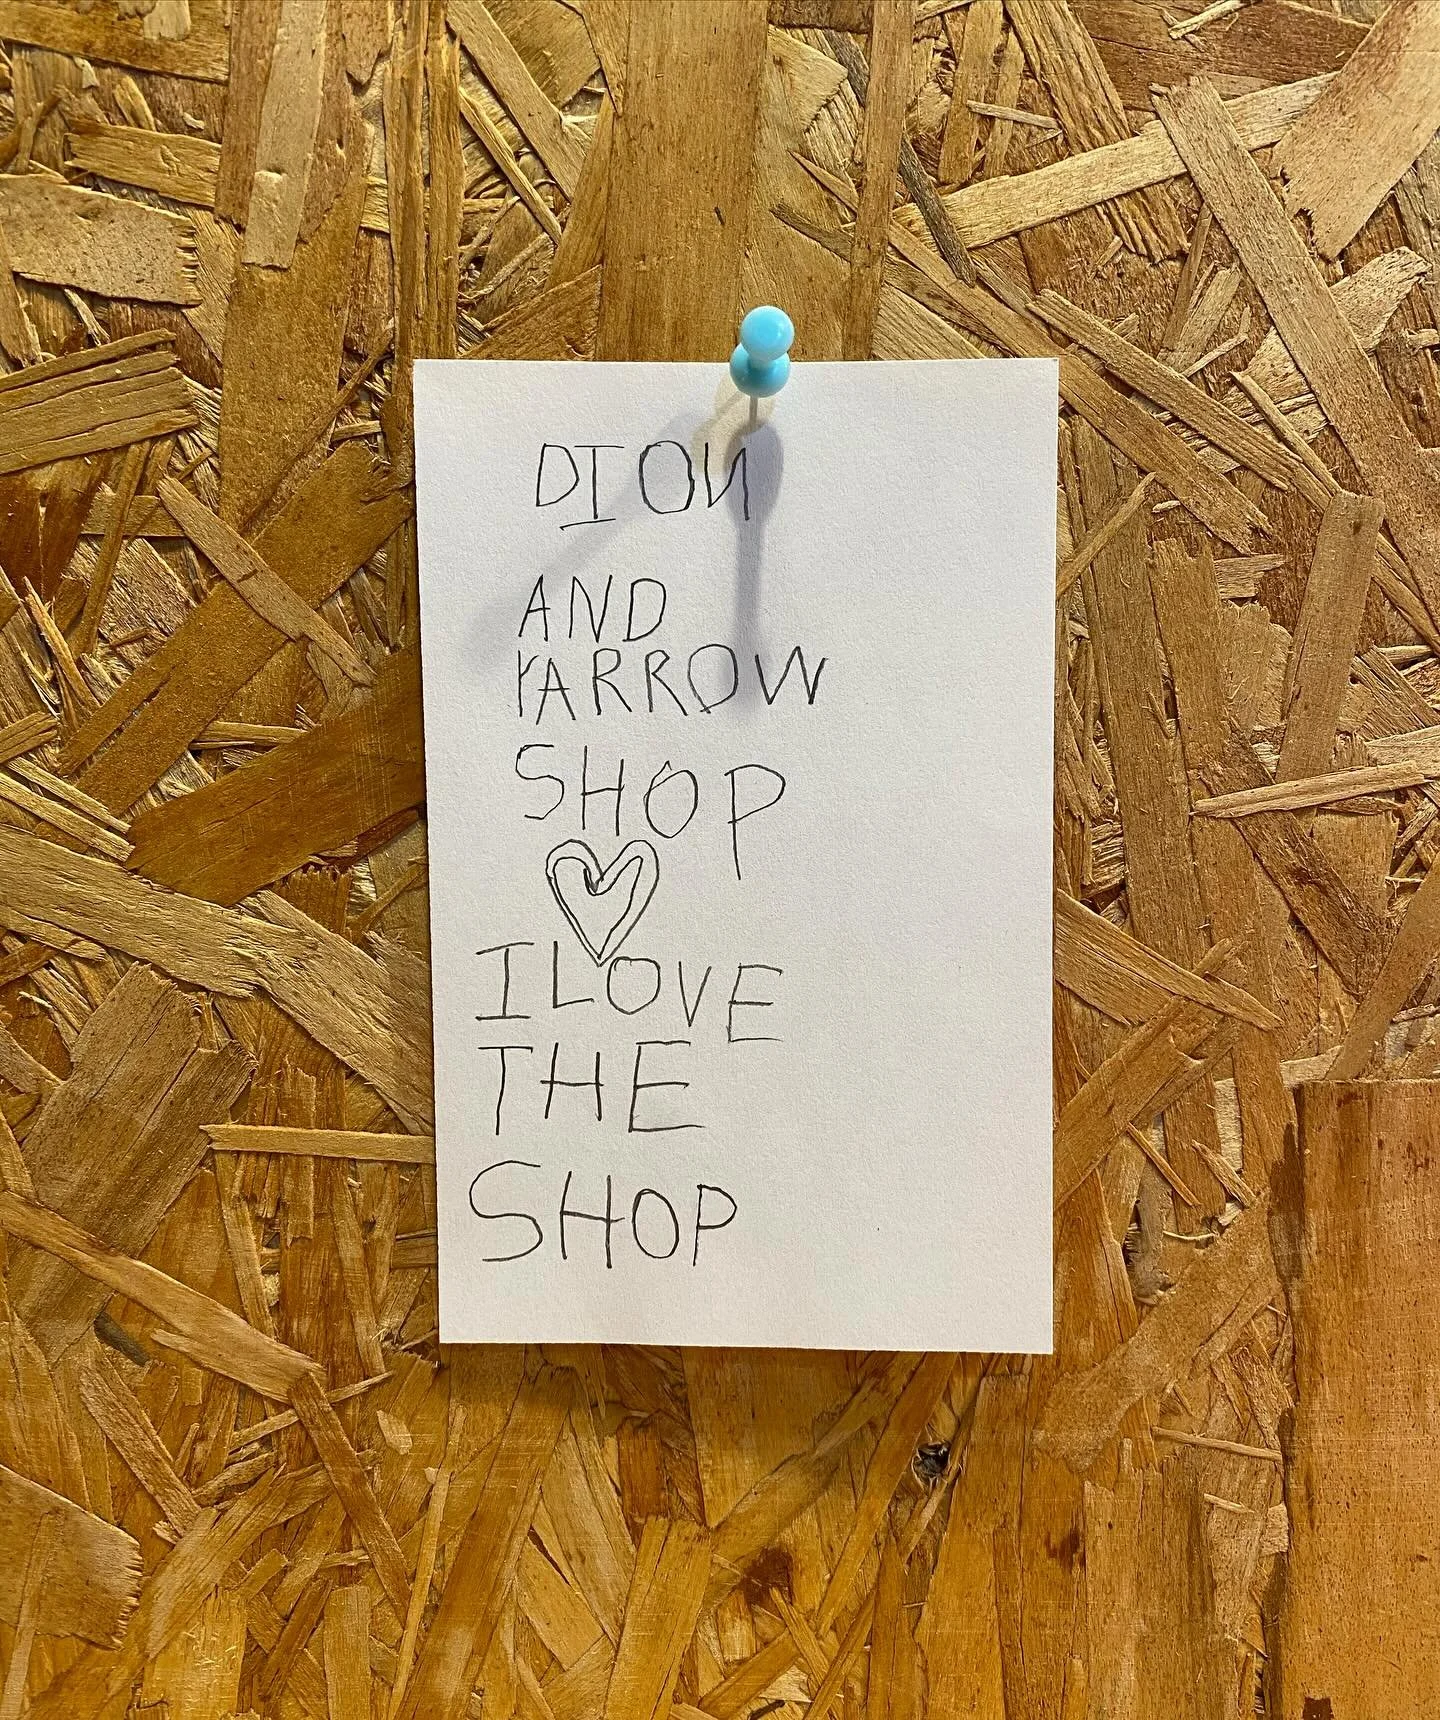 DION
AND
YARROW
SHOP
I LOVE
THE
SHOP